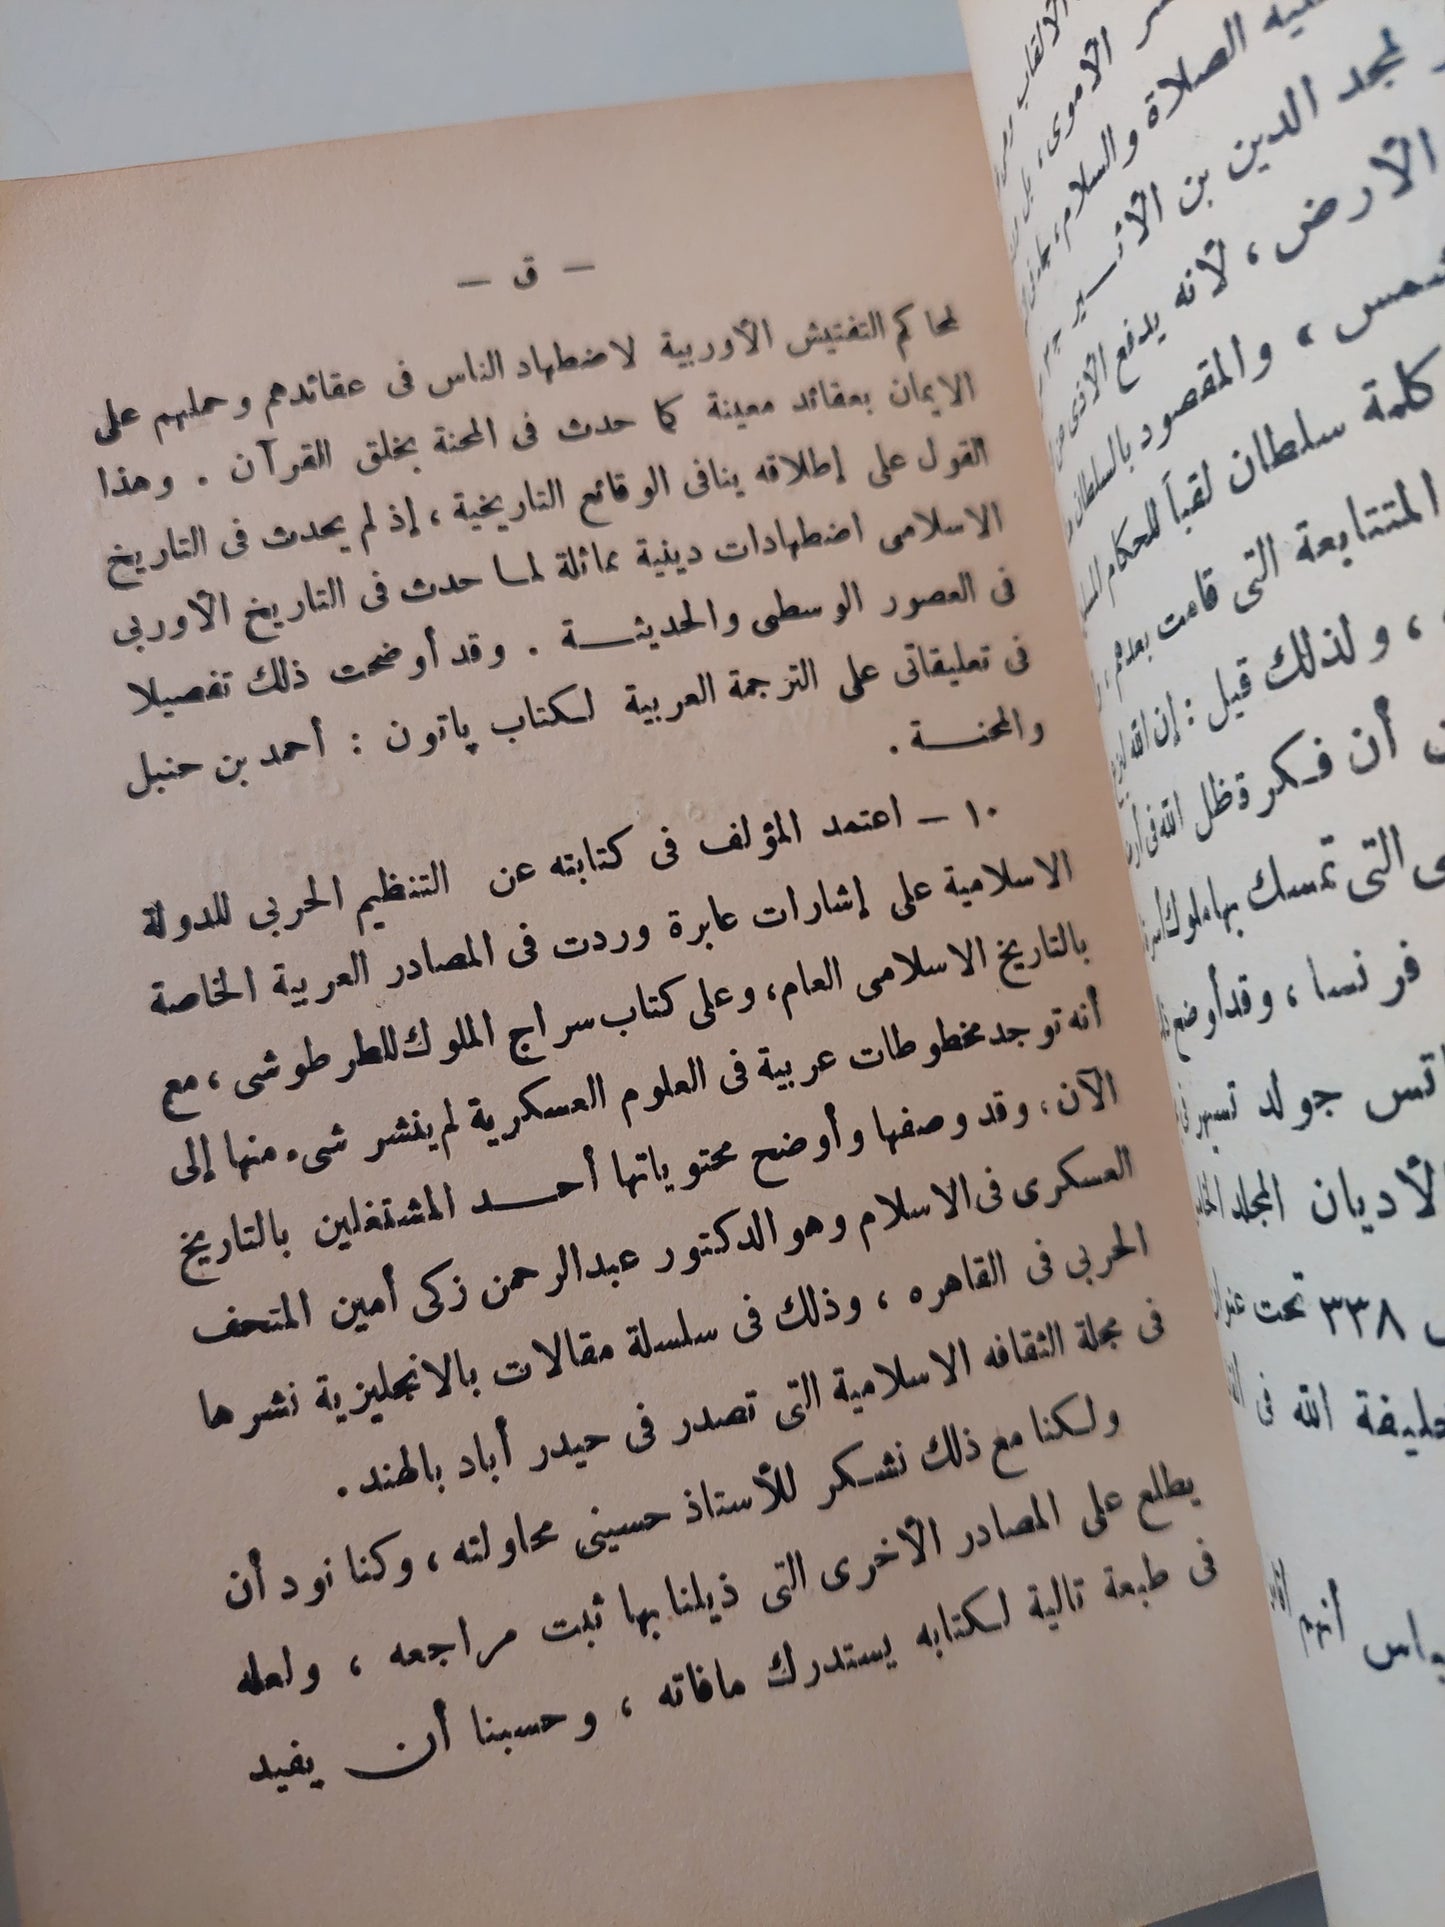 — ق —
لمحاكم التفتيش الأوربية لاضطهاد الناس فى عقائدهم وحملهم على
الايمان بعقائد معينة كما حدث فى المحنة بخلق القرآن . وهذا
القول على إطلاقه ينافى الوقائع التاريخية ، إذ لم يحدث فى التاريخ
الاسلامى اضطهادات دينية مماثلة لما حدث فى التاريخ الأوربى
فى العصور الوسطى والحديثة . وقد أوضحت ذلك تفصيلا
فى تعليقاتى على الترجمة العربية لكتاب پاتون : أحمد بن حنبل
والمحنة .
١٠ — اعتمد المؤلف فى كتابته عن التنظيم الحربى للدولة
الاسلامية على إشارات عابرة وردت فى المصادر العربية الخاصة
بالتاريخ الاسلامى العام ، وعلى كتاب سراج الملوك للطرطوشى ، مع
أنه توجد مخطوطات عربية فى العلوم العسكرية لم ينشر شىء منها إلى
الآن ، وقد وصفها وأوضح محتوياتها أحد المشتغلين بالتاريخ
العسكرى فى الاسلام وهو الدكتور عبد الرحمن زكى أمين المتحف
الحربى فى القاهره ، وذلك فى سلسلة مقالات بالانجليزية نشرها
فى مجلة الثقافه الاسلامية التى تصدر فى حيدر أباد بالهند .
ولكنا مع ذلك نشكر للأستاذ حسينى محاولته ، وكنا نود أن
يطلع على المصادر الأخرى التى ذيلنا بها ثبت مراجعه ، ولعله
فى طبعة تالية لكتابه يستدرك مافاته ، وحسبنا أن يفيد
الألقاب
الأموى ، بل
عليه الصلاة والسلام ،
لمجد الدين بن الأثير
الأرض ، لأنه يدفع الأذى
، والمقصود بالسلطان
كلمة سلطان لقباً للحكام
المتتابعة التى قامت بعدهم
، ولذلك قيل : إن الله
أن فكرة ظل الله فى
التى تمسك بها ملوك
فرنسا ، وقد أوضح
جولد تسيهر
الأديان المجلد
٣٣٨ تحت عنوان
خليفة الله فى
أنهم